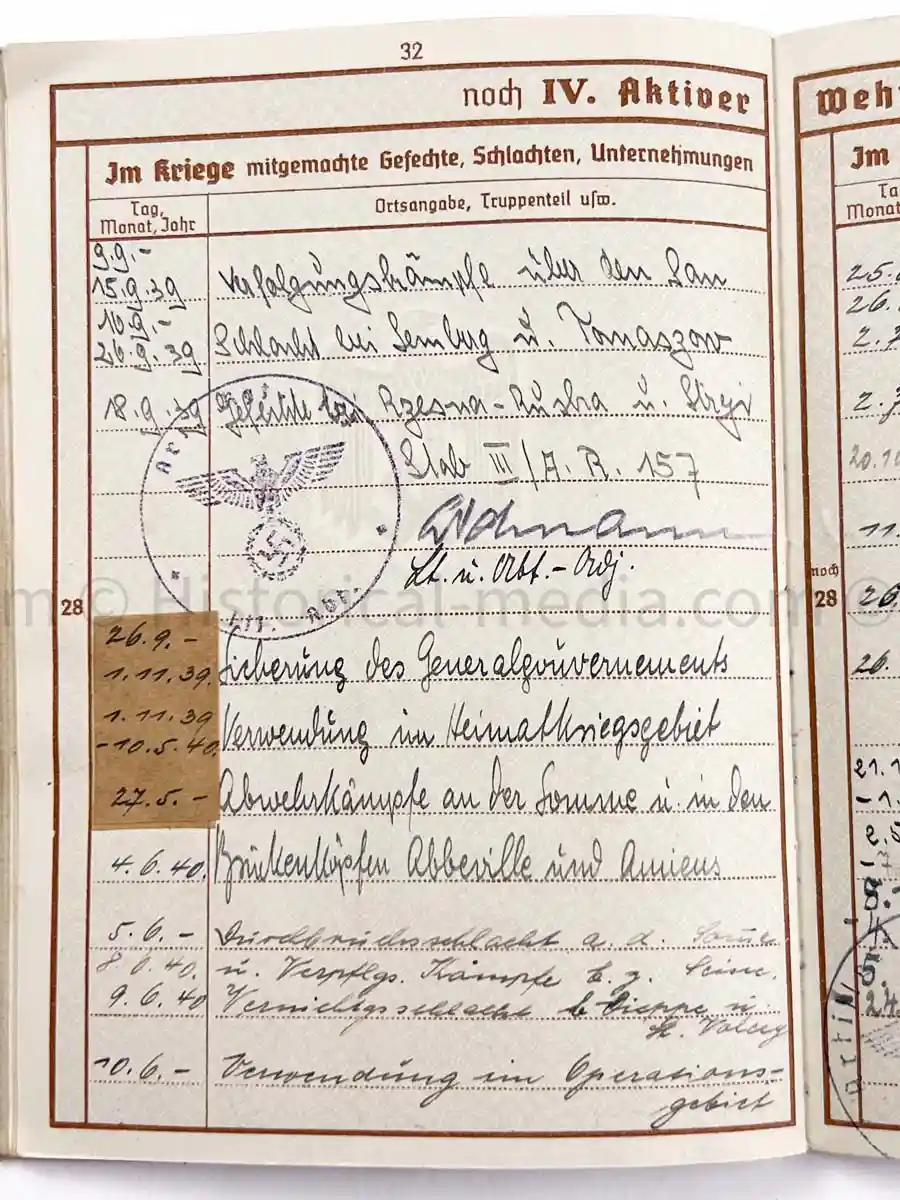 32
noch IV. Aktiver
Im Kriege mitgemachte Gefechte, Schlachten, Unternehmungen
Tag, Monat, Jahr
Ortsangabe, Truppenteil usw.
9.9.-
15.9.39 Verfolgungskämpfe über den San
10.9.-
26.9.39 Schlacht bei Lemberg u. Tomaszow
18.9.39 Gefechte bei Rzesna-Ruska u. Stryj
Stab III/A.R. 157
Lt. u. Abt.-Adj.
III. Abt.
28
26.9.-
1.11.39. Sicherung des Generalgouvernements
1.11.39
-10.5.40. Verwendung im Heimatkriegsgebiet
27.5.- Abwehrkämpfe an der Somme u. in den
4.6.40. Brückenköpfen Abbeville und Amiens
5.6.- Durchbruchsschlacht a. d. Somme
8.6.40. u. Verfolgs. Kämpfe b. z. Seine.
9.6.40 Vernichtgsschlacht b Dieppe u.
St. Valery
10.6.- Verwendung im Operations-
gebiet
Wehr
Im
Ta
Monat
25.
26.
2.7
2.7
20.10
11.
noch
28
26.
26.
21.1
-1.
Artill
24
© Historical-media.com ©